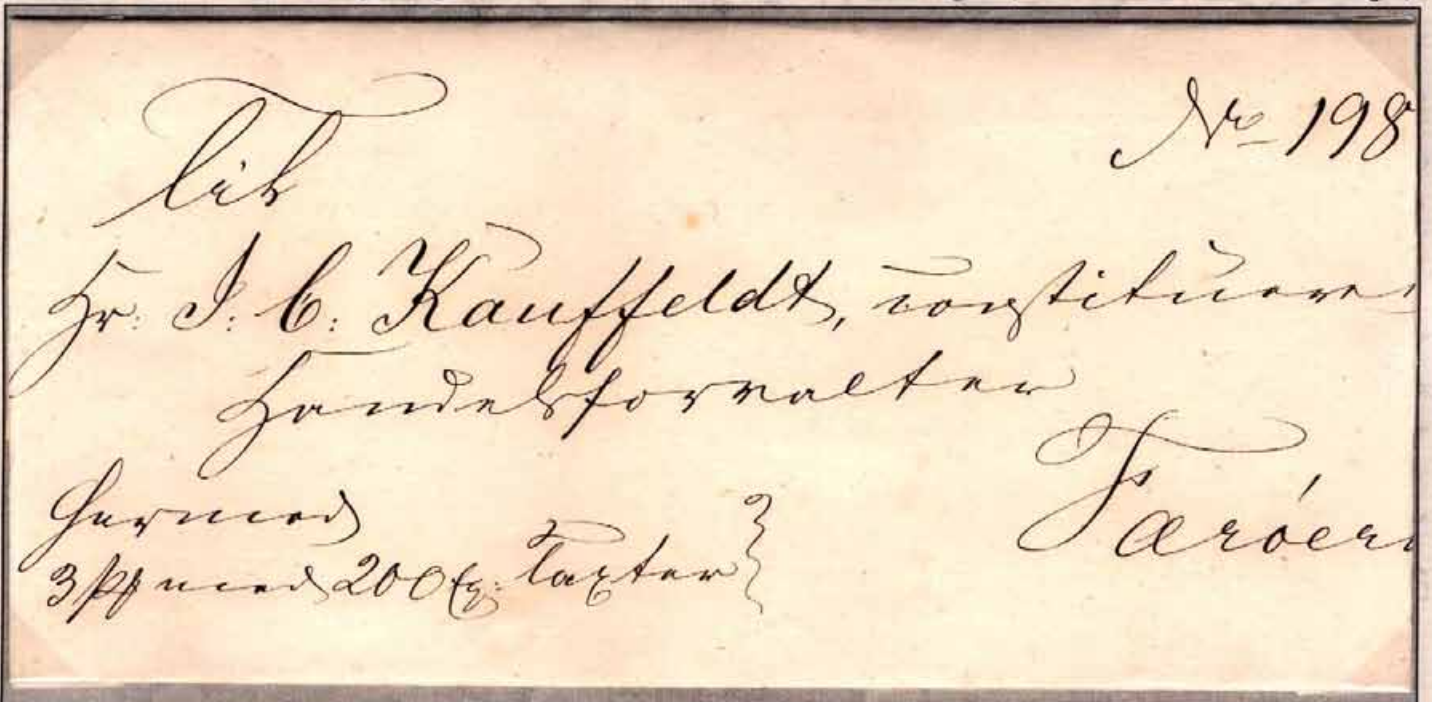 No 198
Til
Hr. J. C. Kauffeldt, constituere
Handelsforvalter
Færöer
hermed
3 med 200 Ex. Taxter